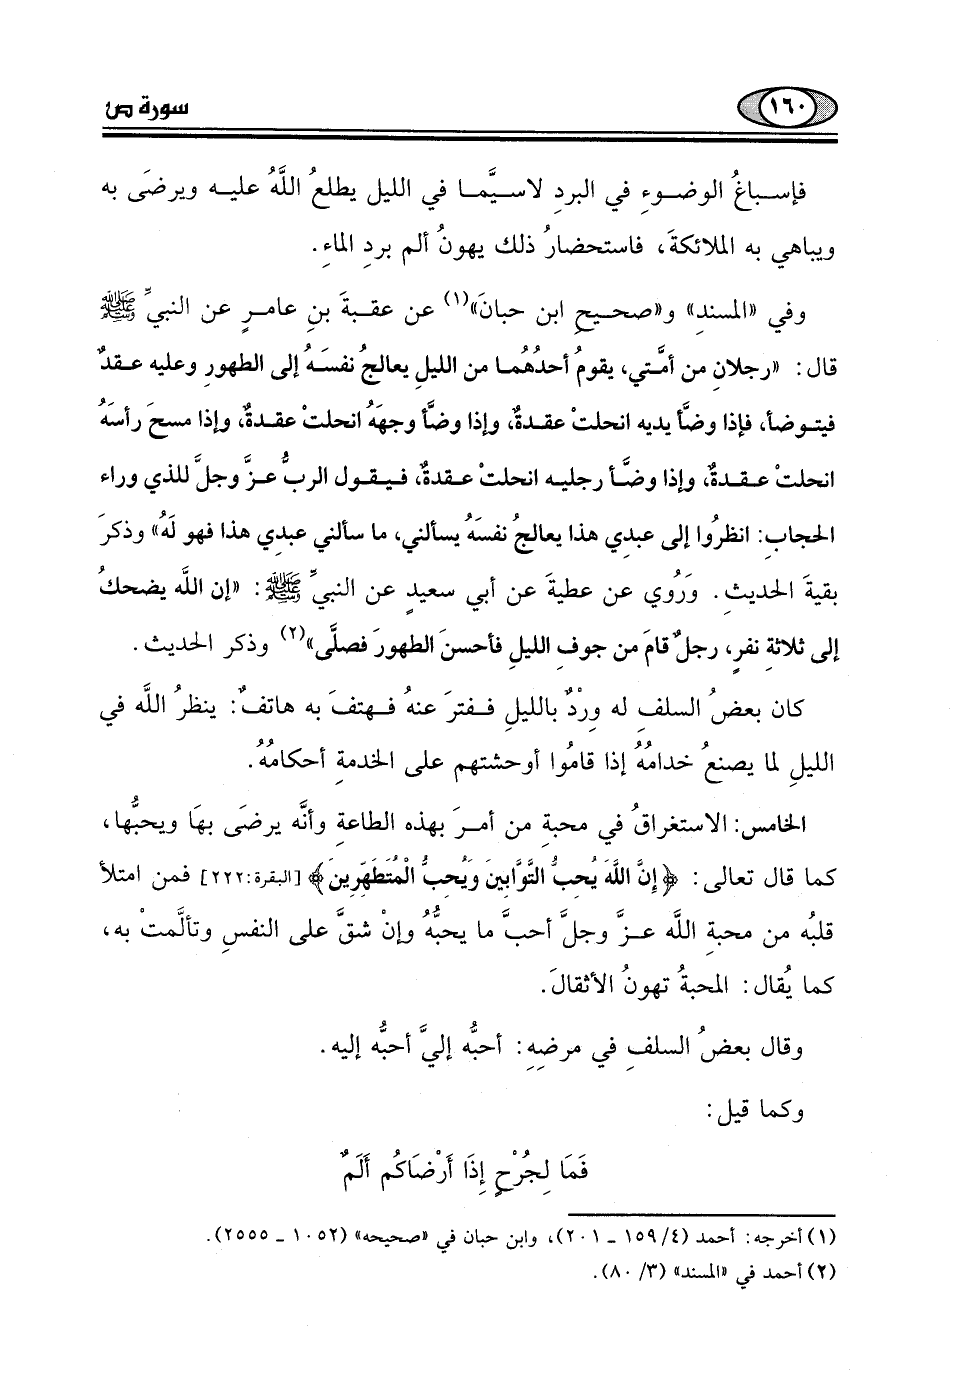 ١٦٠
سورة ص
فإسباغُ الوضوءِ في البردِ لاسيَّما في الليل يطلعُ اللَّهُ عليه ويرضَى به
ويباهي به الملائكةَ، فاستحضارُ ذلك يهونُ ألم بردِ الماءِ.
وفي «المسندِ» و«صحيحِ ابن حبانَ»(١) عن عقبةَ بنِ عامرٍ عن النبيِّ ﷺ
قال: «رجلانِ من أمَّتي، يقومُ أحدُهُما من الليلِ يعالجُ نفسَهُ إلى الطهورِ وعليه عقدٌ
فيتوضأ، فإذا وضَّأ يديه انحلتْ عقدةٌ، وإذا وضَّأ وجهَهُ انحلتْ عقدةٌ، وإذا مسحَ رأسَهُ
انحلتْ عقدةٌ، وإذا وضَّأ رجليه انحلتْ عقدةٌ، فيقول الربُّ عزَّ وجلَّ للذي وراء
الحجابِ: انظرُوا إلى عبدِي هذا يعالجُ نفسَهُ يسألني، ما سألني عبدِي هذا فهو لَهُ» وذكرَ
بقيةَ الحديثِ. وَرُوي عن عطيةَ عن أبي سعيدٍ عن النبيِّ ﷺ: «إن اللَّه يضحكُ
إلى ثلاثةِ نفرٍ، رجلٌ قامَ من جوفِ الليلِ فأحسنَ الطهورَ فصلَّى»(٢) وذكر الحديث.
كان بعضُ السلفِ له وِردٌ بالليلِ ففترَ عنهُ فهتفَ به هاتفٌ: ينظرُ اللَّه في
الليلِ لما يصنعُ خدامُهُ إذا قامُوا أوحشتهم على الخدمةِ أحكامُهُ.
الخامس: الاستغراقُ في محبةِ من أمرَ بهذه الطاعةِ وأنَّه يرضَى بهَا ويحبُّها،
كما قال تعالى: ﴿إِنَّ اللَّهَ يُحِبُّ التَّوَّابِينَ وَيُحِبُّ الْمُتَطَهِّرِينَ﴾ [البقرة:٢٢٢] فمن امتلأ
قلبُه من محبةِ اللَّه عزَّ وجلَّ أحبَّ ما يحبُّهُ وإنْ شقَّ على النفسِ وتألَّمتْ به،
كما يُقال: المحبةُ تهونُ الأثقالَ.
وقال بعضُ السلفِ في مرضِهِ: أحبُّه إليَّ أحبُّه إليه.
وكما قيل:
فَمَا لِجُرْحٍ إِذَا أَرْضَاكُم أَلَمٌ
(١) أخرجه: أحمد (٤/ ١٥٩ ـ ٢٠١)، وابن حبان في «صحيحه» (١٠٥٢ ـ ٢٥٥٥).
(٢) أحمد في «المسند» (٣/ ٨٠).